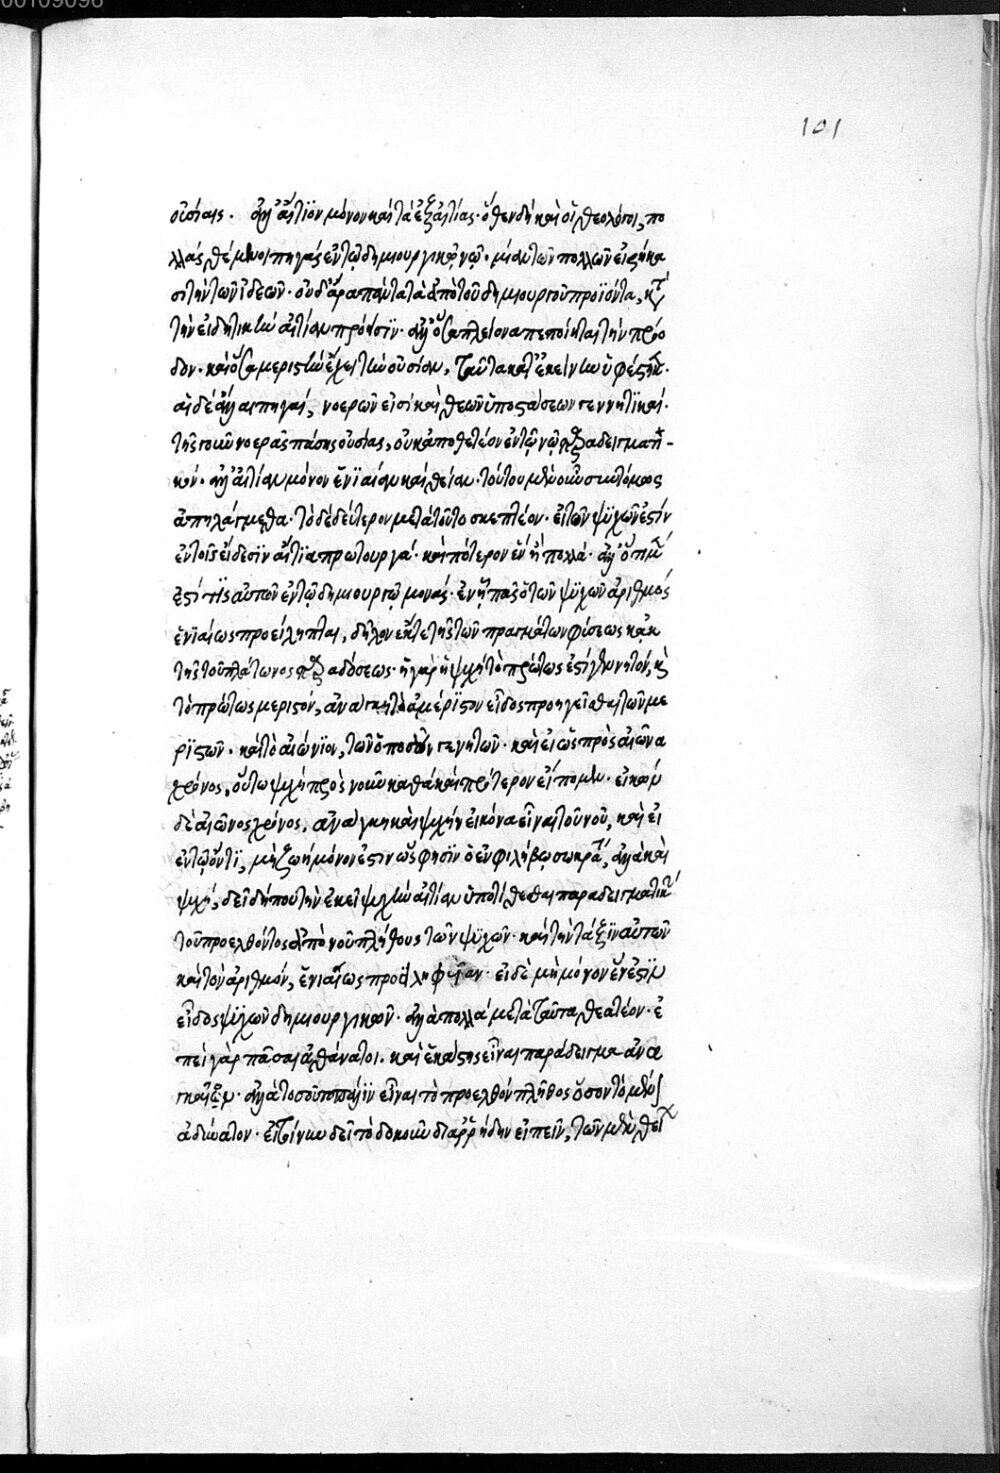 00109098
101
οὐσίαις. ἀλλ' αἴτιον μόνον καὶ τὰ ἐξ αἰτίας· ὅθεν δὴ καὶ οἱ θεολόγοι, πο
λλὰς θέμενοι πηγὰς ἐν τῷ δημιουργικῷ νῷ· μίαν τῶν πολλῶν εἰρήκα
σι τὴν τῶν ἰδεῶν· οὐδ' ἄρα πάντα τὰ ἀπὸ τοῦ δημιουργοῦ προϊόντα, κατὰ
τὴν εἰδητικὴν αἰτίαν πρόεισιν· ἀλλ' ὅσα πλείονα πεποίηται τὴν πρόο
δον· καὶ ὅσα μεριστὴν ἔχει τὴν οὐσίαν, ταῦτα κατ' ἐκείνην ὑφέστηκεν·
αἱ δὲ ἄλλαι πηγαί, νοερῶν εἰσὶ καὶ θεῶν ὑποστάσεων γεννητικαί·
τῆς γοῦν νοερᾶς πάσης οὐσίας, οὐκ ἀποθετέον ἐν τῷ νῷ παραδειγματι-
κόν· ἀλλ' αἰτίαν μόνον ἑνιαίαν καὶ θείαν· τούτου μὲν οὖν συντόμως
ἀπηλλάγμεθα· τὸ δὲ δεύτερον μετὰ τοῦτο σκεπτέον· εἰ τῶν ψυχῶν ἐστὶν
ἐν τοῖς εἴδεσιν αἴτια πρωτουργά· καὶ πότερον ἓν ἢ πολλά· ἀλλ' ὅτι μὲν
ἐστί τις αὐτῶν ἐν τῷ δημιουργῷ μονάς· ἐν ᾗ πᾶς ὁ τῶν ψυχῶν ἀριθμὸς
ἑνιαίως προείληπται, δῆλον ἔκ τε τῆς τῶν πραγμάτων φύσεως κἀκ
τῆς τοῦ πλάτωνος παραδόσεως· εἰ γὰρ ἡ ψυχὴ τὸ πρώτως ἐστὶ γεννητόν, καὶ
τὸ πρώτως μεριστόν, ἀνάγκη τὸ ἀμέριστον εἶδος προηγεῖσθαι τῶν με
ριστῶν· καὶ τὸ αἰώνιον, τῶν ὁπωσοῦν γενητῶν· καὶ εἰ ὡς πρὸς αἰῶνα
χρόνος, οὕτω ψυχὴ πρὸς νοῦν καθὰ καὶ πρότερον εἴπομεν· εἰκὼν
δὲ αἰῶνος χρόνος, ἀνάγκη καὶ ψυχὴν εἰκόνα εἶναι τοῦ νοῦ, καὶ εἰ
ἐν τῷ ὄντι, μὴ ζωὴ μόνον ἐστὶν ὥς φησιν ὁ ἐν φιλήβῳ σωκράτης, ἀλλὰ καὶ
ψυχή, δεῖ δήπου τὴν ἐκεῖ ψυχὴν αἰτίαν ὑποτίθεσθαι παραδειγματικὴν
τοῦ προελθόντος ἀπὸ νοῦ πλήθους τῶν ψυχῶν· καὶ τὴν τάξιν αὐτῶν
καὶ τὸν ἀριθμόν, ἑνιαίως προειληφυῖαν· εἰ δὲ μὴ μόνον ἕν ἐστιν
εἶδος ψυχῶν δημιουργικῶν· ἀλλὰ πολλὰ μετὰ ταῦτα θεατέον· ἐ
πεὶ γὰρ πᾶσαι ἀθάνατοι· καὶ ἑκάστης εἶναι παράδειγμα ἀνα
γκαῖον· ἀλλὰ τοσοῦτον εἶναι τὸ προελθὸν πλῆθος ὅσον τὸ μένον
ἀδύνατον· εἰ τοίνυν δεῖ τὸ δοκοῦν διαρρήδην εἰπεῖν, τῶν μὲν θείων